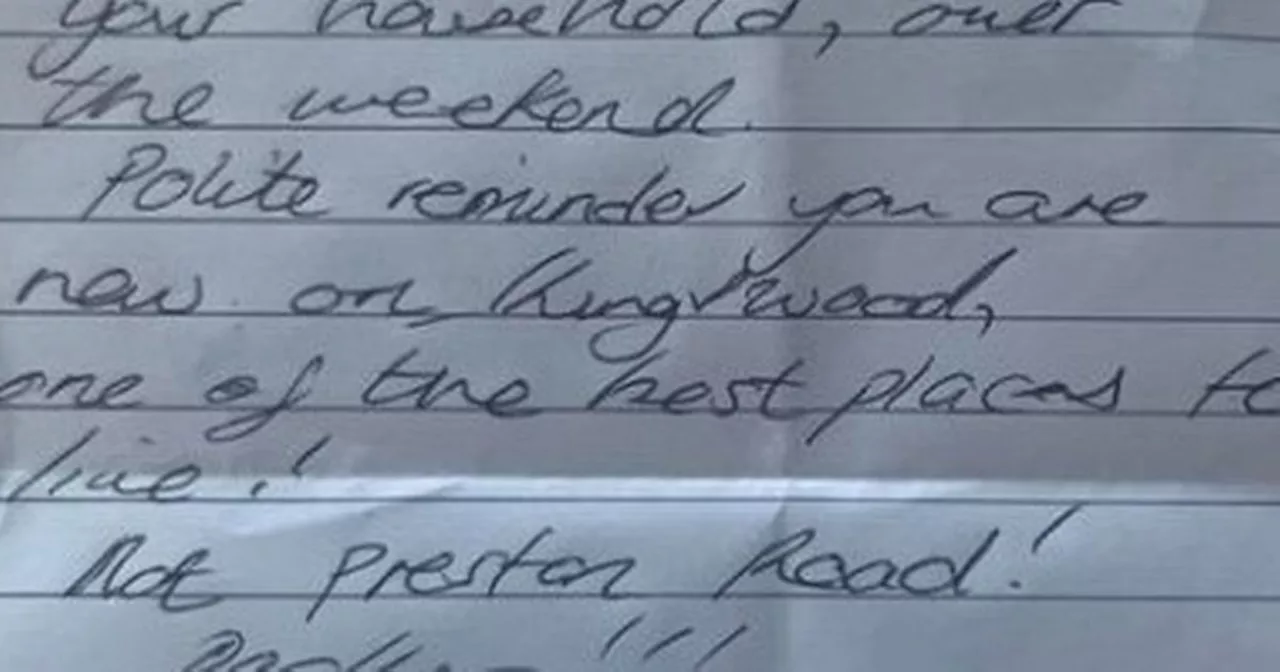 your household, over
the weekend.
Polite reminder you are
now on, Kingswood,
one of the best places to
live!
Not Preston Road!